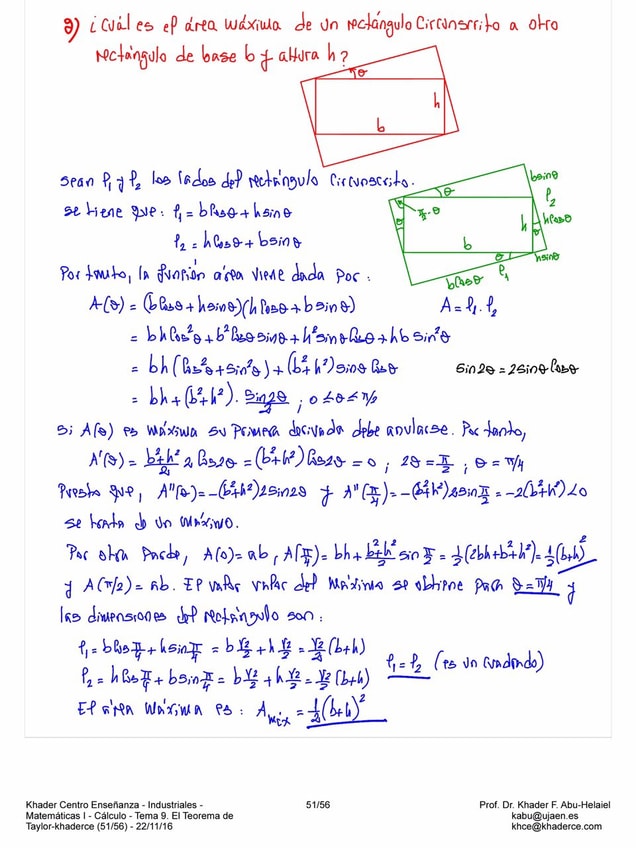 9) ¿Cuál es el área máxima de un rectángulo circunscrito a otro
rectángulo de base b y altura h?
θ
h
b
Sean l₁ y l₂ los lados del rectángulo circunscrito.
se tiene que: l₁ = b cosθ + h sinθ
l₂ = h cosθ + b sinθ
b sinθ
θ
l₂
θ
π/2-θ
h cosθ
θ
h
θ
b
θ
h sinθ
l₁
b cosθ
Por tanto, la función área viene dada por:
A(θ) = (b cosθ + h sinθ)(h cosθ + b sinθ) A = l₁ · l₂
= bh cos²θ + b² cosθ sinθ + h² sinθ cosθ + hb sin²θ
= bh (cos²θ + sin²θ) + (b² + h²) sinθ cosθ sin2θ = 2 sinθ cosθ
= bh + (b² + h²) · sin2θ/2 ; 0 ≤ θ ≤ π/2
Si A(θ) es máxima su primera derivada debe anularse. Por tanto,
A'(θ) = (b²+h²)/2 2 cos2θ = (b²+h²) cos2θ = 0 ; 2θ = π/2 ; θ = π/4
Puesto que, A''(θ) = -(b²+h²) 2 sin2θ y A''(π/4) = -(b²+h²) 2 sin π/2 = -2(b²+h²) < 0
se trata d un máximo.
Por otra parte, A(0) = ab, A(π/4) = bh + (b²+h²)/2 sin π/2 = 1/2 (2bh + b² + h²) = 1/2 (b+h)²
y A(π/2) = ab. El valor valor del máximo se obtiene para θ = π/4 y
las dimensiones del rectángulo son:
l₁ = b cos π/4 + h sin π/4 = b √2/2 + h √2/2 = √2/2 (b+h)
l₂ = h cos π/4 + b sin π/4 = b √2/2 + h √2/2 = √2/2 (b+h) l₁ = l₂ (es un cuadrado)
El área máxima es: A máx = 1/2 (b+h)²
Khader Centro Enseñanza - Industriales -
Matemáticas I - Cálculo - Tema 9. El Teorema de
Taylor-khaderce (51/56) - 22/11/16
51/56
Prof. Dr. Khader F. Abu-Helaiel
kabu@ujaen.es
khce@khaderce.com